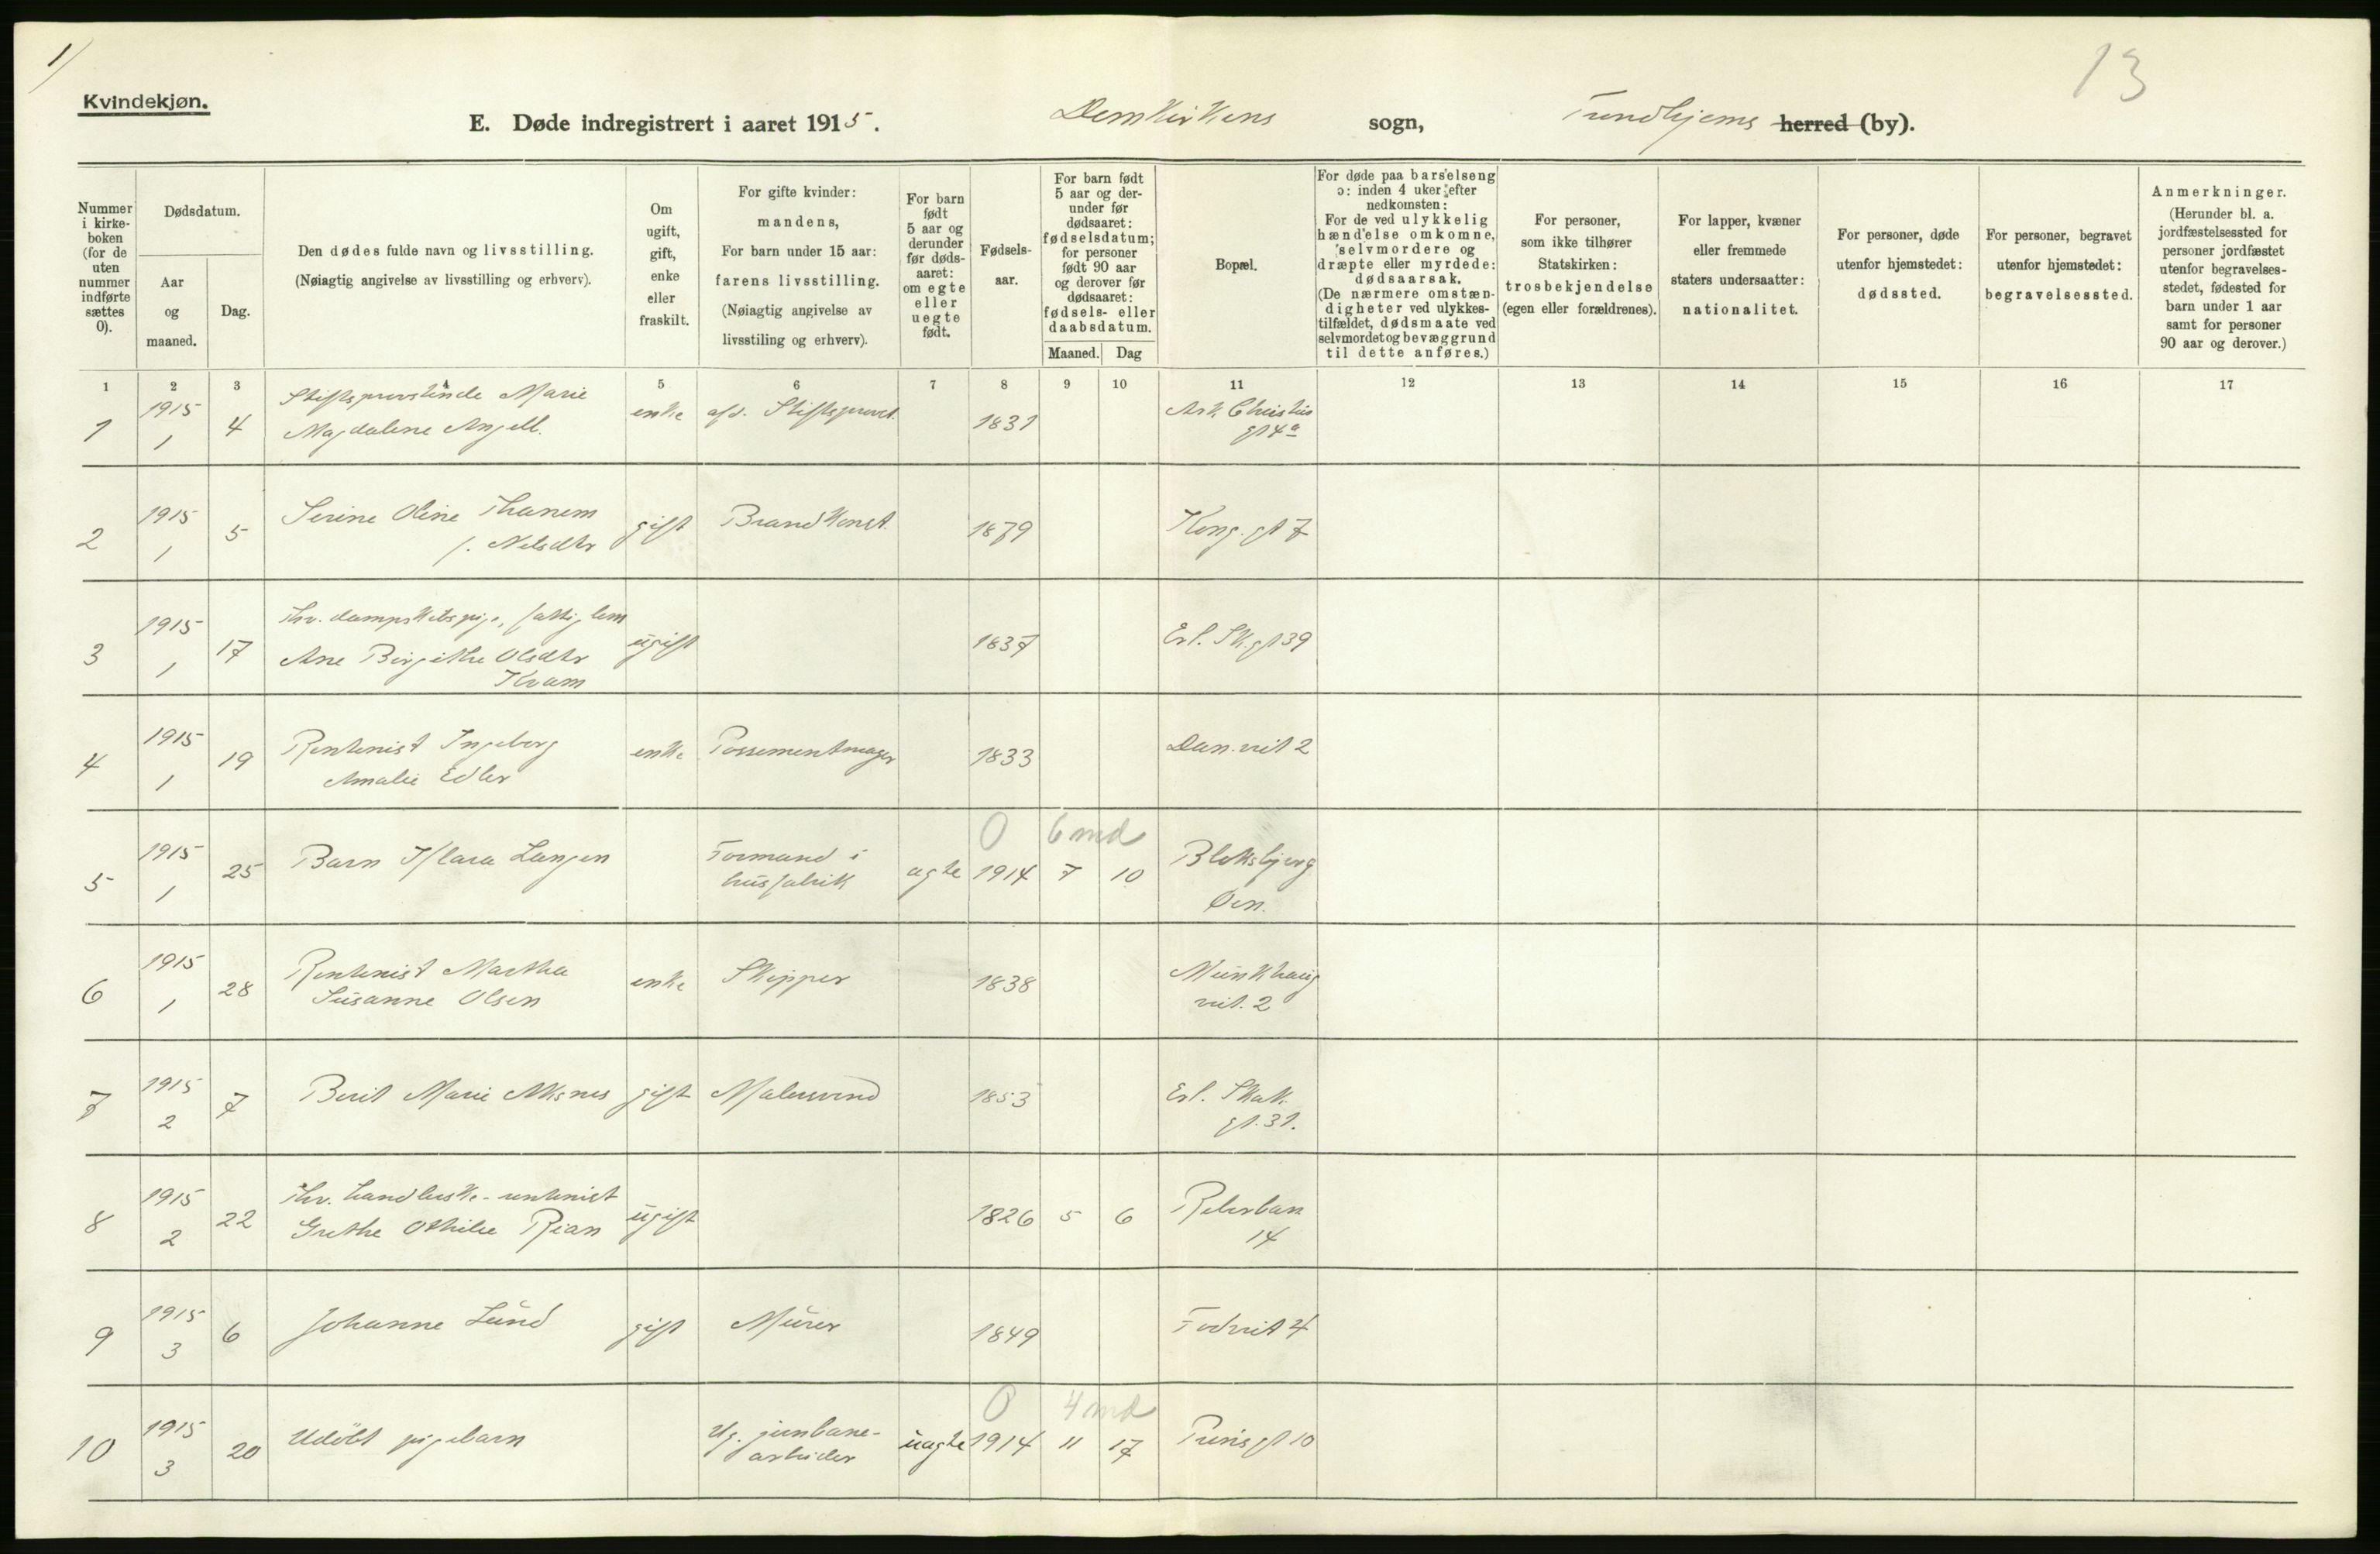 1/
13
Kvindekjøn.
E. Døde indregistrert i aaret 1915. Domkirkens sogn, Trondhjems herred (by).
Nummer i kirke-boken (for de uten nummer indførte sættes 0).
Dødsdatum.
Aar og maaned.
Dag.
Den dødes fulde navn og livsstilling.
(Nøiagtig angivelse av livsstilling og erhverv).
Om ugift, gift, enke eller fraskilt.
For gifte kvinder: mandens,
For barn under 15 aar: farens livsstilling.
(Nøiagtig angivelse av livsstiling og erhverv).
For barn født 5 aar og derunder før døds-aaret: om egte eller uegte født.
Fødsels-aar.
For barn født 5 aar og der-under før dødsaaret: fødselsdatum; for personer født 90 aar og derover før dødsaaret: fødsels- eller daabsdatum.
Maaned. Dag
Bopæl.
For døde paa barselseng ɔ: inden 4 uker efter nedkomsten:
For de ved ulykkelig hændelse omkomne, selvmordere og dræpte eller myrdede: dødsaarsak.
(De nærmere omstæn-digheter ved ulykkes-tilfældet, dødsmaate ved selvmordet og bevæggrund til dette anføres.)
For personer, som ikke tilhører Statskirken: trosbekjendelse (egen eller forældrenes).
For lapper, kvæner eller fremmede staters undersaatter: nationalitet.
For personer, døde utenfor hjemstedet: dødssted.
For personer, begravet utenfor hjemstedet: begravelsessted.
Anmerkninger.
(Herunder bl. a. jordfæstelsessted for personer jordfæstet utenfor begravelses-stedet, fødested for barn under 1 aar samt for personer 90 aar og derover.)
1 2 3 4 5 6 7 8 9 10 11 12 13 14 15 16 17
1 1915 1 4 Stiftsprovstinde Marie Magdalene Angell. enke afd. Stiftsprovst. 1831 Ark. Christies gt 4a
2 1915 1 5 Serine Oline Thanem f. Nilsdtr gift Brandkonst. 1879 Kong. gt 7
3 1915 1 17 fhv. dampskibspige, fattiglem Ane Birgithe Olsdtr Kvam ugift 1837 Erl. Sk. gt 39
4 1915 1 19 Rentenist Ingeborg Amalie Edler enke Possementmager 1833 Dan. veit 2
0 6 md
5 1915 1 25 Barn Klara Langen Formand i husfabrik ægte 1914 7 10 Bleksbjerg Øen.
6 1915 1 28 Rentenist Martha Susanne Olsen enke Skipper 1838 Munkhaug veit. 2
7 1915 2 7 Berit Marie Aksnes gift Malersvend 1853 Erl. Skak. gt. 31.
8 1915 2 22 fhv. handlerske - rentenist Grethe Othilie Rian ugift 1826 5 6 Reberban 14
9 1915 3 6 Johanne Lund gift Murer 1849 Tod veit 4
0 4 md
10 1915 3 20 Udöbt pigebarn Ug. jernbane-arbeider uægte 1914 11 17 gt 10